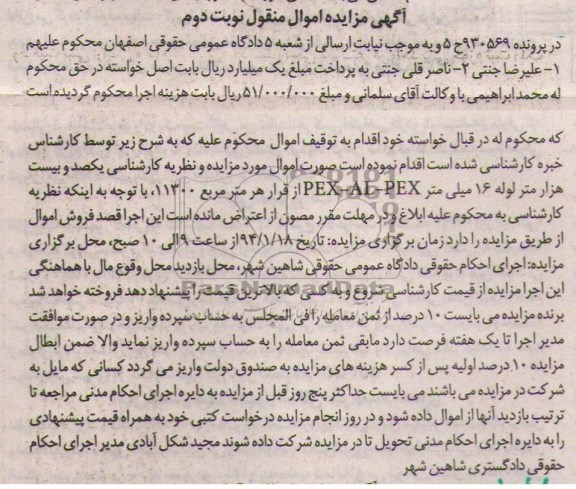 آگهی مزایده اموال منقول نوبت دوم
در پرونده ۹۳۰۵۶۹ح ۵ و به موجب نیابت ارسالی از شعبه ۵ دادگاه عمومی حقوقی اصفهان محکوم علیهم
۱- علیرضا جنتی ۲- ناصر قلی جنتی به پرداخت مبلغ یک میلیارد ریال بابت اصل خواسته در حق محکوم
له محمد ابراهیمی با وکالت آقای سلمانی و مبلغ ۵۱/۰۰۰/۰۰۰ ریال بابت هزینه اجرا محکوم گردیده است
که محکوم له در قبال خواسته خود اقدام به توقیف اموال محکوم علیه که به شرح زیر توسط کارشناس
خبره کارشناسی شده است اقدام نموده است صورت اموال مورد مزایده و نظریه کارشناسی یکصد و بیست
هزار متر لوله ۱۶ میلی متر PEX-AL-PEX از قرار هر متر مربع ۱۱۳۰۰، با توجه به اینکه نظریه
کارشناسی به محکوم علیه ابلاغ و در مهلت مقرر مصون از اعتراض مانده است این اجرا قصد فروش اموال
از طریق مزایده را دارد زمان برگزاری مزایده: تاریخ ۹۴/۱/۱۸ از ساعت ۹ الی ۱۰ صبح، محل برگزاری
مزایده: اجرای احکام حقوقی دادگاه عمومی حقوقی شاهین شهر، محل بازدید محل وقوع مال با هماهنگی
این اجرا مزایده از قیمت کارشناسی شروع و به کسی که بالاترین قیمت را پیشنهاد دهد فروخته خواهد شد
برنده مزایده می بایست ۱۰ درصد از ثمن معامله را فی المجلس به حساب سپرده واریز و در صورت موافقت
مدیر اجرا تا یک هفته فرصت دارد مابقی ثمن معامله را به حساب سپرده واریز نماید والا ضمن ابطال
مزایده ۱۰ درصد اولیه پس از کسر هزینه های مزایده به صندوق دولت واریز می گردد کسانی که مایل به
شرکت در مزایده می باشند می بایست حداکثر پنج روز قبل از مزایده به دایره اجرای احکام مدنی مراجعه تا
ترتیب بازدید آنها از اموال داده شود و در روز انجام مزایده درخواست کتبی خود به همراه قیمت پیشنهادی
را به دایره اجرای احکام مدنی تحویل تا در مزایده شرکت داده شوند مجید شکل آبادی مدیر اجرای احکام
حقوقی دادگستری شاهین شهر